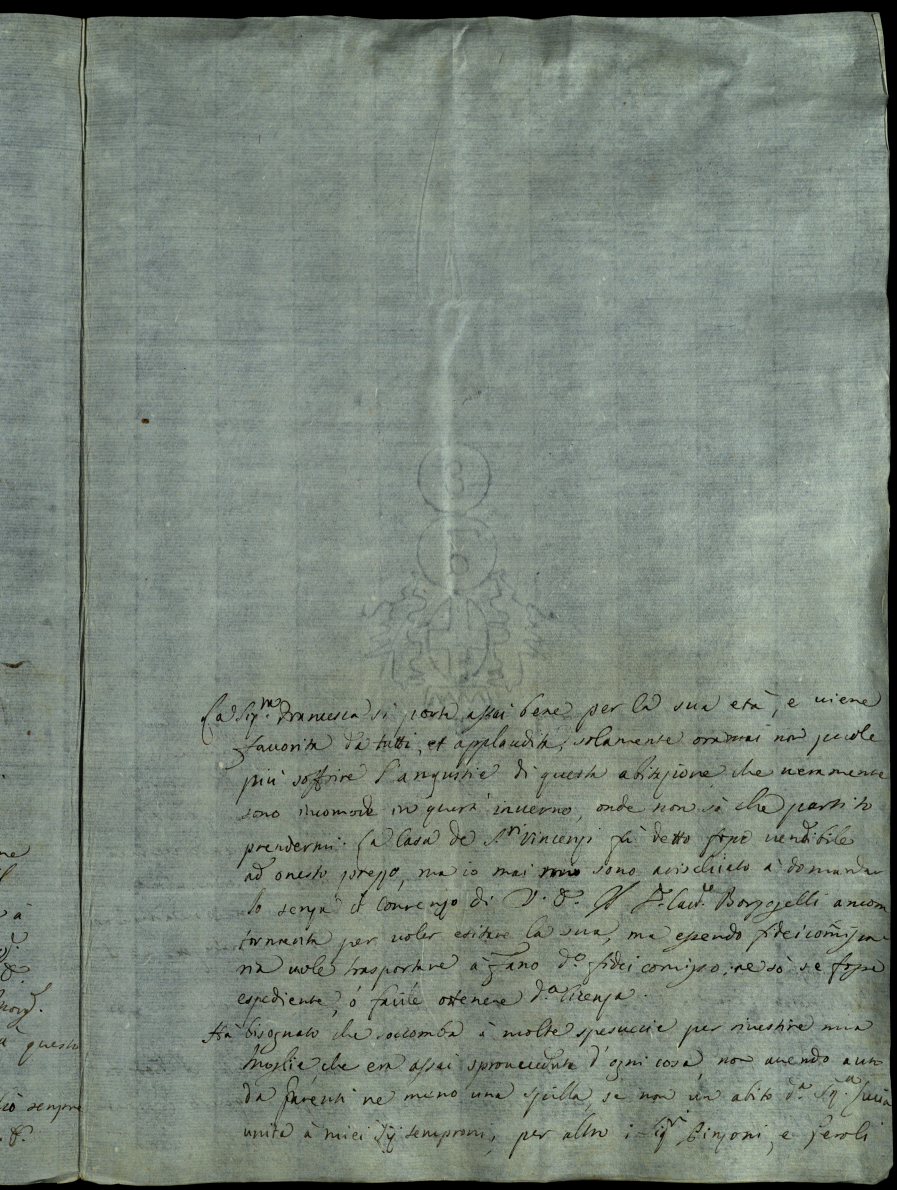 ne
à
a questo
ciò sempre
La Sig.ra Francesca si porta assai bene per la sua età, e viene
favorita da tutti, et applaudita, solamente oramai non puole
più soffrire l'angustie di questa abitazione che veramente
sono incomode in quest' inverno, onde non sò che partito
prendermi. La Casa de S.ri Vincenzi fù detto fosse vendibile
ad onesto prezzo, ma io mai sono arischiato à domandar
lo senza il Consenso di V. E. Il Cav.e Borgogelli ancora
tormenta per voler esitare la sua, ma essendo fideicomissa
ria vuole trasportare à Fano d.o fideicomisso, ne sò se fosse
espediente, ò facile ottenere d.a licenza.
Hà bisognato che soccomba à molte spesuccie per rivestire mia
Moglie, che era assai sproveduta d'ogni cosa, non avendo auto
da Parenti ne meno una spilla, se non un abito d.a Sig.a Lucia
unita à miei Zij Semproni, per altro i Sig.ri Pinzoni, e